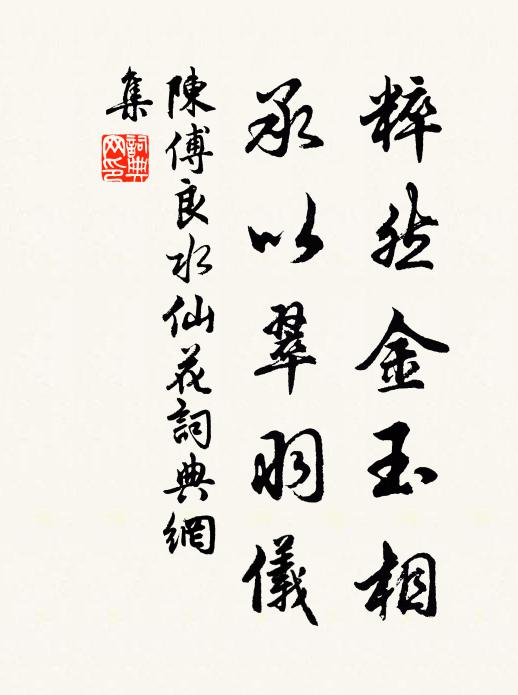 粹然金玉相
承以翠羽儀
陳傅良水仙花詞典網
集
詞典
网印